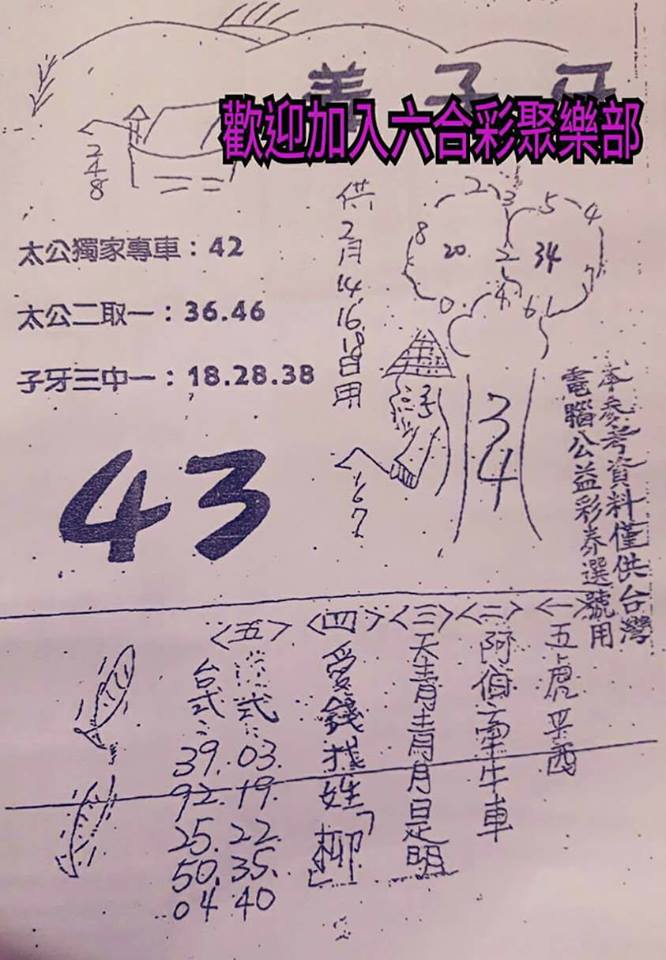 姜子牙
歡迎加入六合彩聚樂部
248
供2月14.16.18日用
太公獨家專車：42
太公二取一：36.46
子牙三中一：18.28.38
43
8
2
3
5
4
20
2
34
7
0
4
6
1
34
167
本參考資料僅供台灣
電腦公益彩券選號用
<一>五虎平西
<二>阿伯牽牛車
<三>天青青月是明
<四>愛錢找姓「柳」
<五>
式：
03.
19.
22
35
40
台式：
39.
92.
25.
50.
04